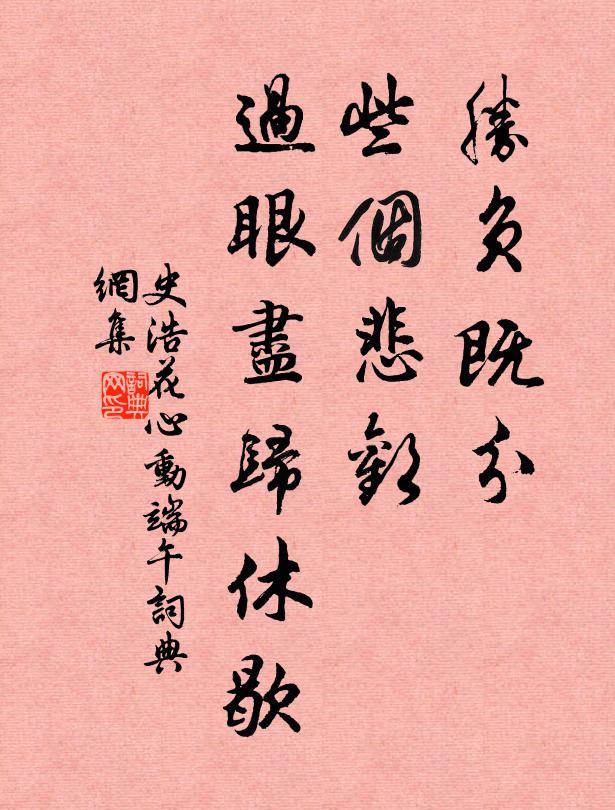 勝負既分
些個悲歡
過眼盡歸休歇
史浩花心動端午詞典
網集
詞典網印